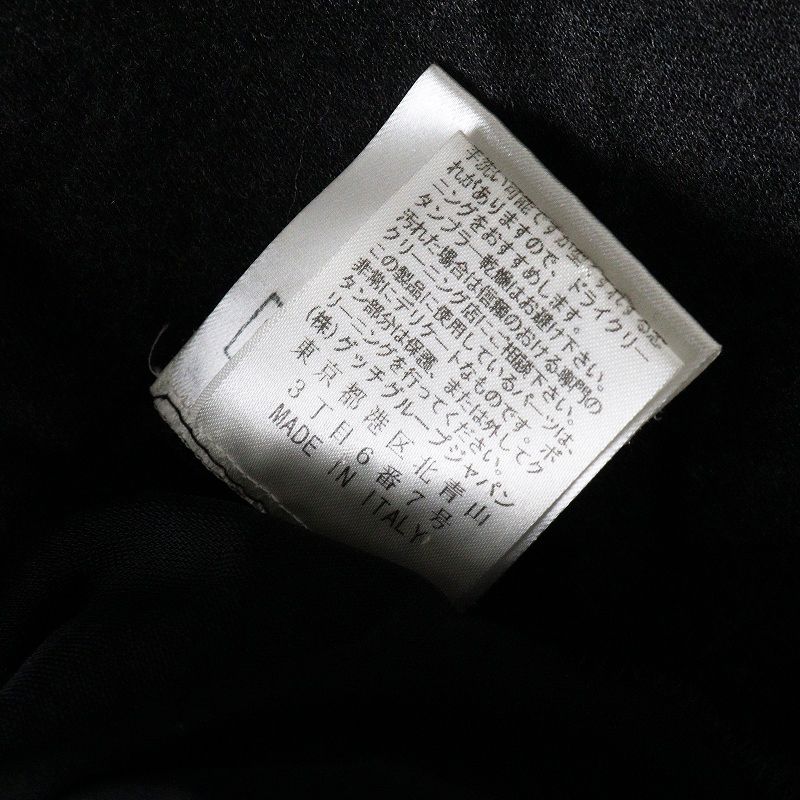 手洗い可能ですが
れがありますので、ドライクリー
ニングをおすすめします。
タンブラー乾燥はお避け下さい。
汚れた場合は信頼のおける専門の
クリーニング店にご相談下さい。
この製品に使用しているパーツは、
非常にデリケートなものです。ボ
タン部分は保護、または外してク
リーニングを行ってください。
(株)グッチグループジャパン
東京都港区北青山
3丁目6番7号
MADE IN ITALY